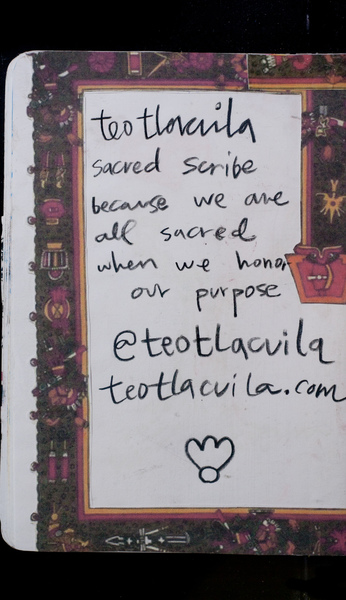 teotlacuila
sacred scribe
because we are
all sacred
when we honor
our purpose
@teotlacuila
teotlacuila.com